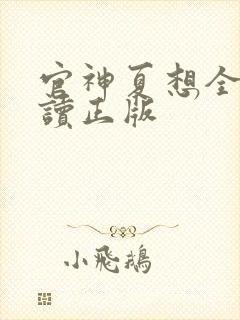 官神夏想全
讀正版
小飛鵝